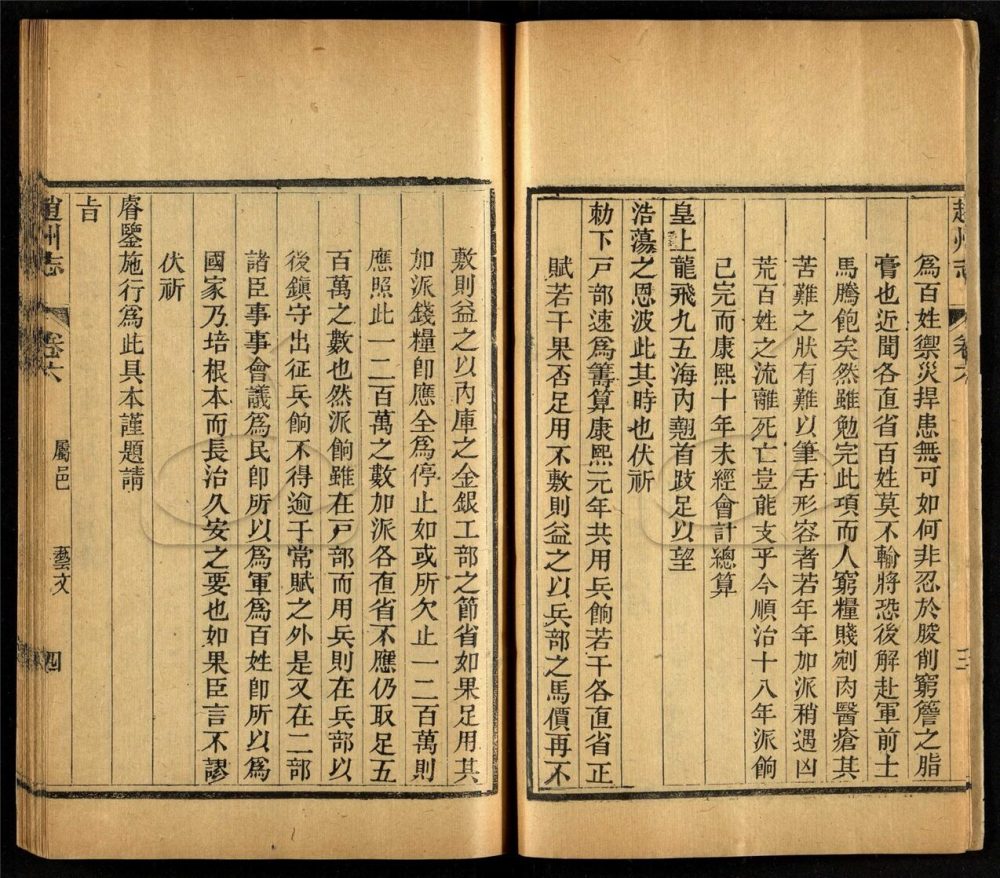 趙州志 卷六 三
為百姓禦災捍患無可如何非忍於朘削窮簷之脂
膏也近聞各直省百姓莫不輸將恐後解赴軍前士
馬騰飽矣然雖勉完此項而人窮糧賤剜肉醫瘡其
苦難之狀有難以筆舌形容者若年年加派稍遇凶
荒百姓之流離死亡豈能支乎今順治十八年派餉
己完而康熙十年未經會計總算
皇上龍飛九五海內翹首跂足以望
浩蕩之恩波此其時也伏祈
勅下戸部速為籌算康熙元年共用兵餉若干各直省正
賦若干果否足用不敷則益之以兵部之馬價再不
敷則益之以內庫之金銀工部之節省如果足用其
加派錢糧卽應全為停止如或所欠止一二百萬則
應照此一二百萬之數加派各直省不應仍取足五
百萬之數也然派餉雖在戸部而用兵則在兵部以
後鎮守出征兵餉不得逾于常賦之外是又在二部
諸臣事事會議為民卽所以為軍為百姓卽所以為
國家乃培根本而長治久安之要也如果臣言不謬
伏祈
睿鑒施行為此具本謹題請
旨
趙州志 卷六 屬邑 藝文 四